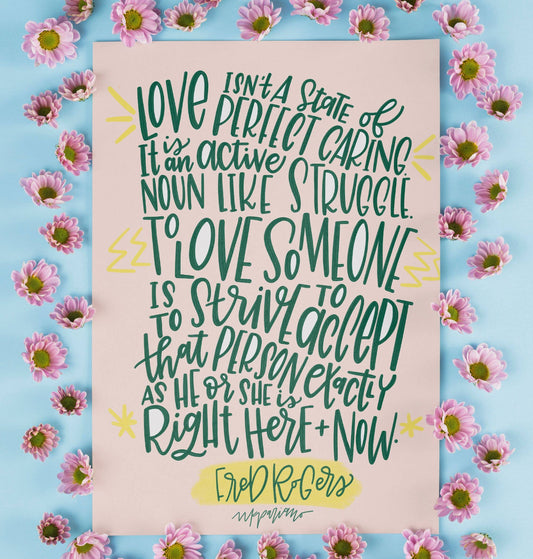 LOVE ISN'T A STATE OF
PERFECT CARING.
It is an active
NOUN LIKE STRUGGLE.
TO LOVE SOMEONE
IS TO STRIVE TO
ACCEPT
that PERSON exactly
AS HE OR SHE is
Right HeRe + NOW.
FReD RoGeRs